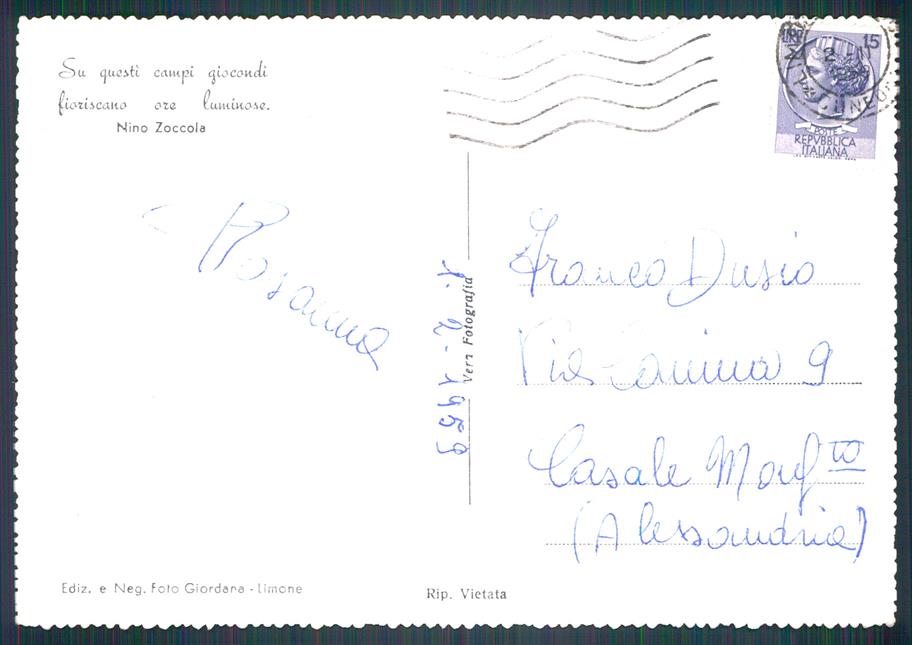 Su questi campi giocondi
fioriscano ore luminose.
Nino Zoccola
LIRE 15
POSTE
REPVBBLICA
ITALIANA
CUNEO
Rosanna
1.2.1959
Vera Fotografia
Franco Dusio
Via 9
Casale Monf to
(Alessandria)
Ediz. e Neg. Foto Giordana - Limone
Rip. Vietata